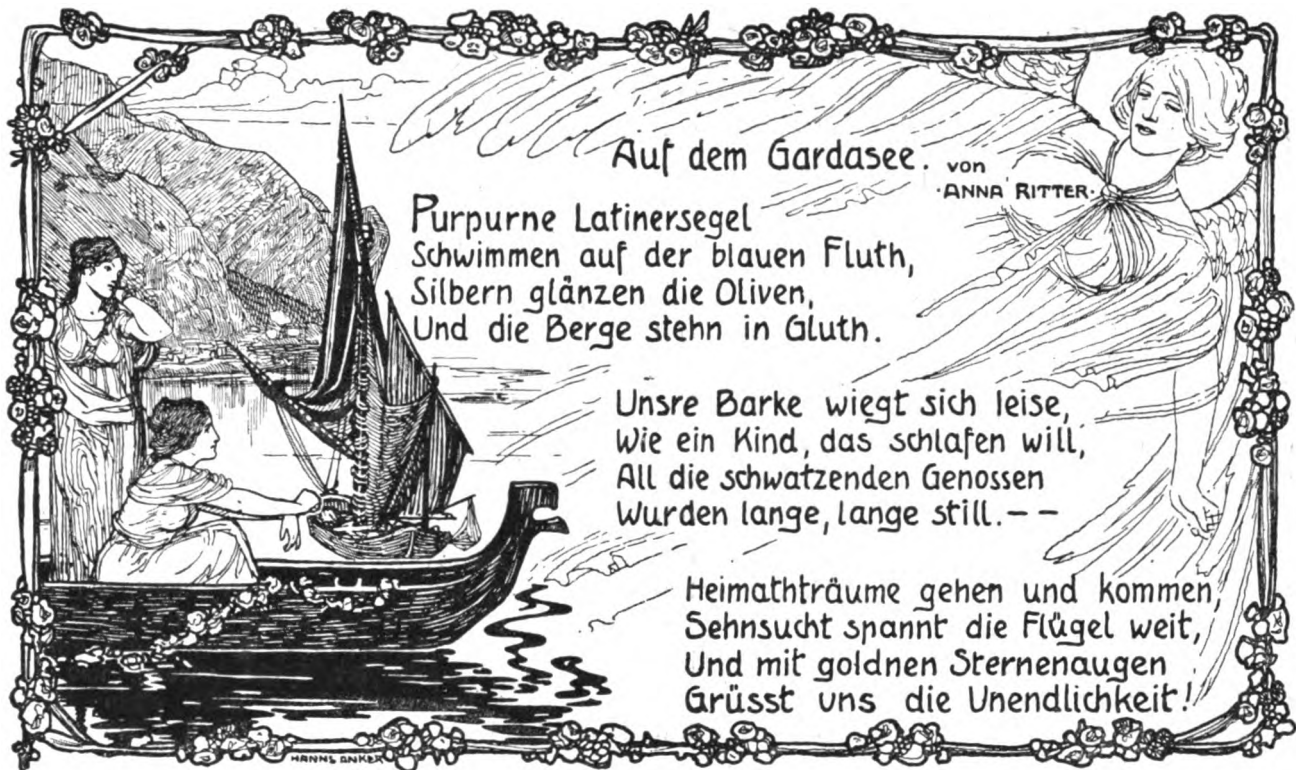 Auf dem Gardasee.
von
·ANNA RITTER·
Purpurne Latinersegel
Schwimmen auf der blauen Fluth,
Silbern glänzen die Oliven,
Und die Berge stehn in Gluth.
Unsre Barke wiegt sich leise,
Wie ein Kind, das schlafen will,
All die schwatzenden Genossen
Wurden lange, lange still.--
Heimathträume gehen und kommen,
Sehnsucht spannt die Flügel weit,
Und mit goldnen Sternenaugen
Grüsst uns die Unendlichkeit!
HANNS ANKER